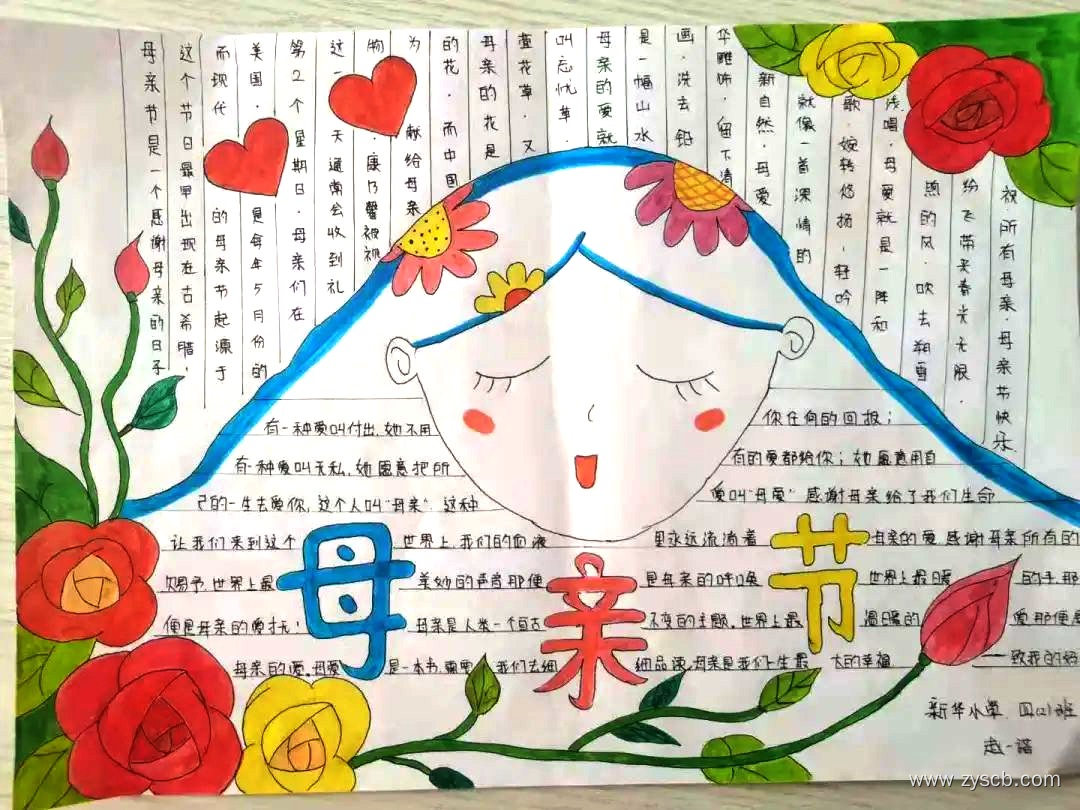 母亲节是一个感谢母亲的日子
这个节日最早出现在古希腊，
而现代的母亲节起源于
美国，是每年5月份的
第2个星期日，母亲们在
这一天通常会收到礼
物，康乃馨被视
为献给母亲
的花，而中国
母亲的花是
萱花草，又
叫忘忧草，
母亲的爱就
是一幅山水
画，洗去铅
华雕饰，留下清
新自然，母爱
就像一首深情的
歌，婉转悠扬，轻吟
浅唱，母爱就是一阵和
煦的风，吹去朔雪
纷飞带来春光无限
祝所有母亲，母亲节快乐
有一种爱叫付出，她不用你任何的回报；
有一种爱叫无私，她愿意把所有的爱都给你；她愿意用自
己的一生去爱你，这个人叫"母亲"，这种爱叫"母爱"感谢母亲给了我们生命
让我们来到这个世界上，我们的血液里永远流淌着母亲的爱，感谢母亲所有的
赐予，世界上最美妙的声音那便是母亲的呼唤世界上最暖的手，那
便是母亲的爱抚！母亲是人类一个亘古不变的主题，世界上最温暖的爱那便是
母亲的爱，母爱是一本书，需要我们去细细品读，母亲是我们一生最大的幸福——致我的妈
母亲节
新华小学 四(2)班
赵一诺
www.zyscb.com